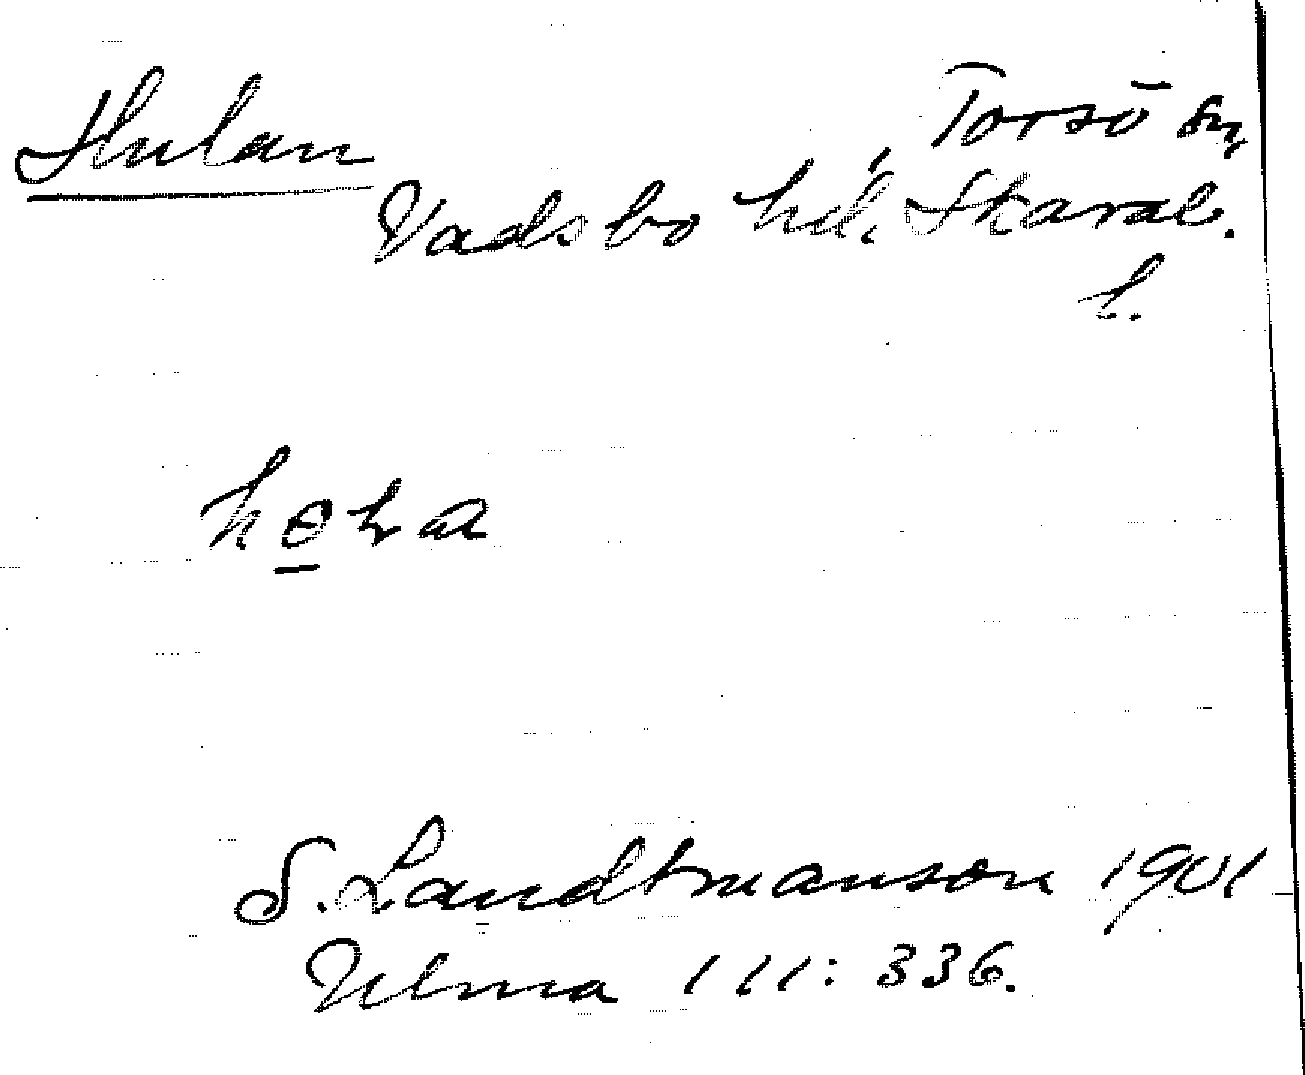 Hulan Torsö sn
Vadsbo hd. Skarab.
l.
hɵla
S. Landtmanson 1901
Ulma 111: 336.